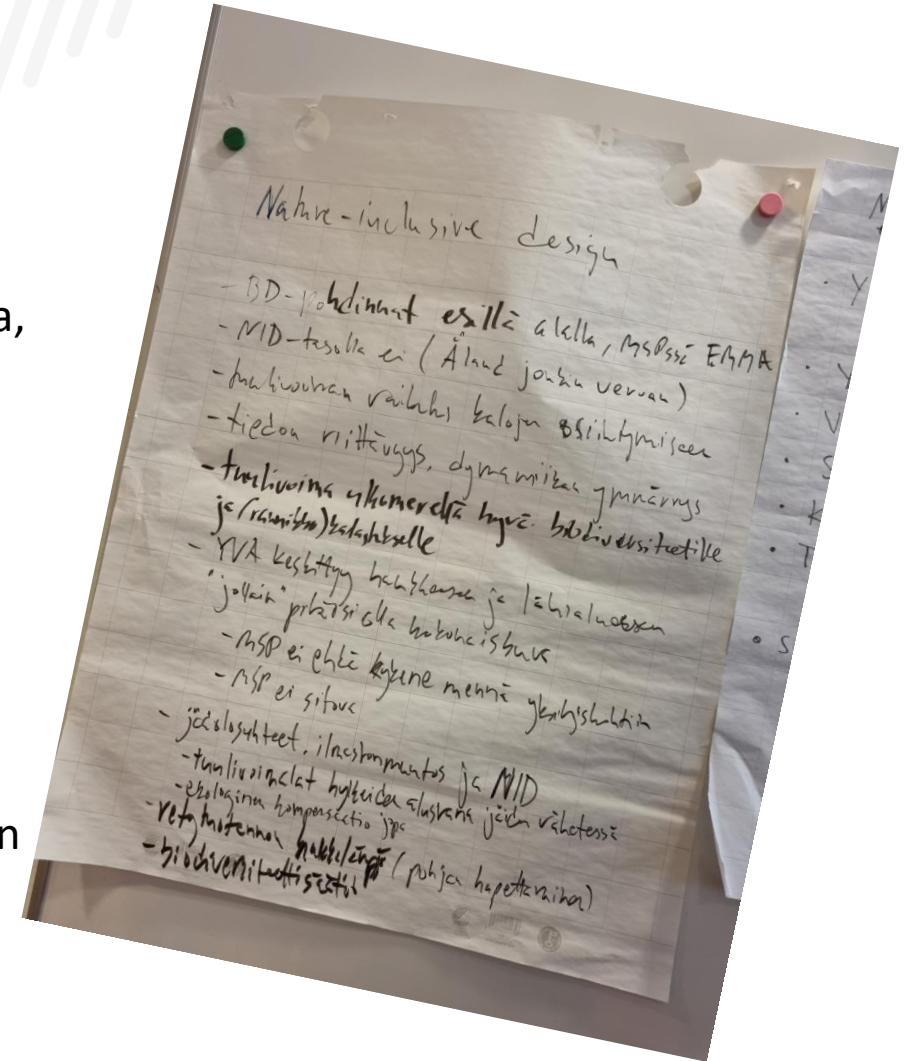 a,
n
Nature-inclusive design
- BD-pohdinnat esillä alalla, MSPssä EMMA
- NID-tasolla ei (Åland jonkin verran)
- tuulivoiman vaikutus kalojen siihtymiseen
- tiedon riittävyys, dynamiikan ymmärrys
- tuulivoima ulkomerellä hyvä biodiversiteetille
ja (rannikko)kalastukselle
- YVA keskittyy hankkeeseen ja lähialueeseen
"jollain" pitäisi olla kokonaiskuva
- MSP ei ehkä kykene mennä yksityiskohtiin
- MSP ei sitova
- jääolosuhteet, ilmastonmuutos ja NID
- tuulivoimalat hylkeiden alustana jäiden vähetessä
- ekologinen kompensaatio jopa
- vetytuotannon (pohjan hapettaminen)
- biodiversiteettisäätiö
Y
Y
V
S
K
T
S